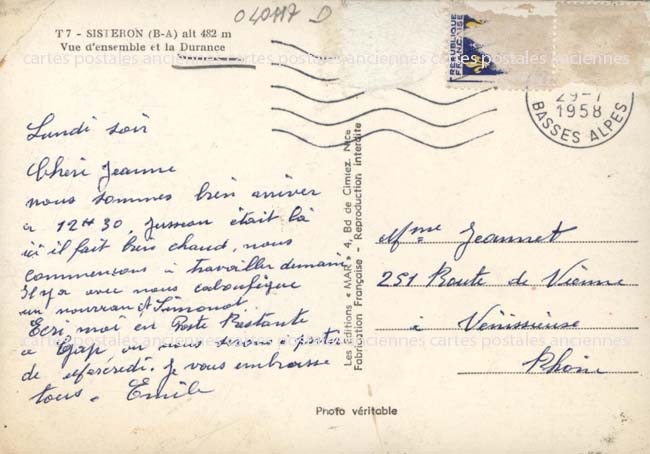 040117 D
T7 - SISTERON (B-A) alt 482 m
Vue d'ensemble et la Durance
REPUBLIQUE FRANÇAISE
29-7
1958
BASSES ALPES
Lundi soir
Chèri Jeanne
nous sommes bien arriver
a 12H30, était là
ici il fait bien chaud, nous
commençons à travailler demain
Il y a avec nous
un nouveau et Simonot.
Ecri, moi en Poste Restante
a Gap, ou nous serons a parter
de Mercredi. je vous embrasse
tous. Emile
Les Editions « MAR » 4, Bd de Cimiez, Nice
Fabrication Française - Reproduction interdite
Mme Jeannet
251 Route de Vienne
à Vénissieuse
Rhône
Photo véritable
cartes postales anciennes cartes postales anciennes cartes postales anciennes